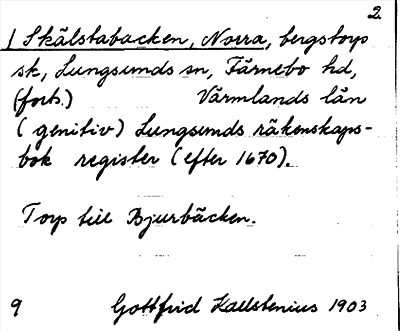 2.
/ Skälstabacken, Norra, bergstorp
sk, Lungsunds sn, Färnebo hd,
(forts.) Värmlands län
(genitiv) Lungsunds räkenskaps-
bok register (efter 1670).
Torp till Bjurbäcken.
9 Gottfrid Kallstenius 1903